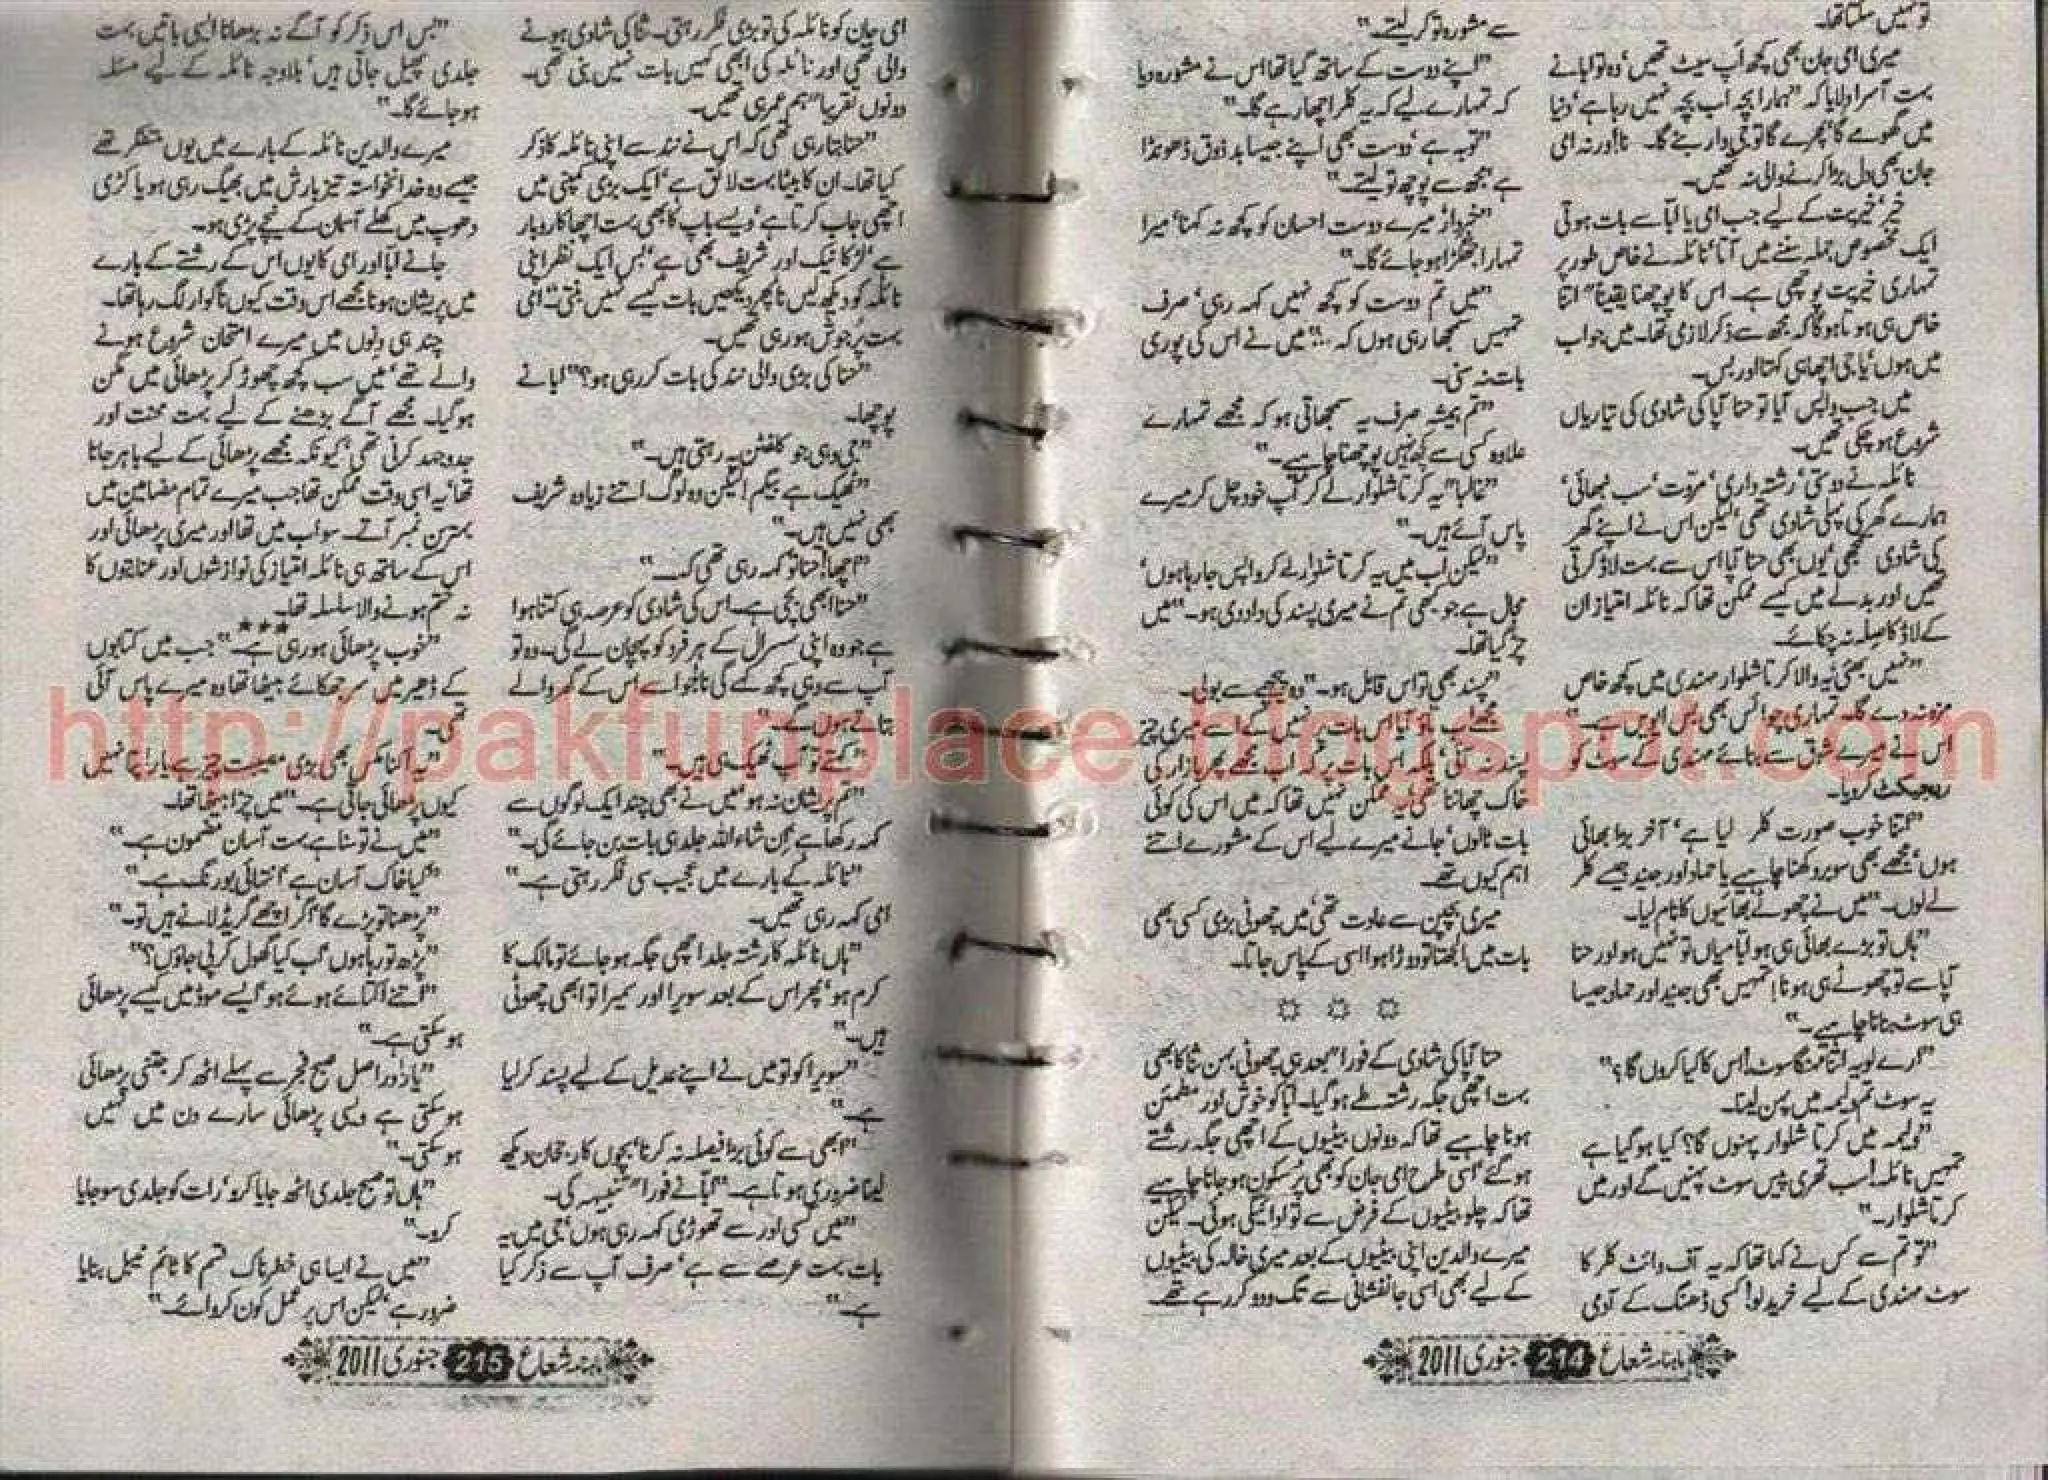 تو نہیں سکتا تھا۔
میری امی جان بھی کچھ اپ سیٹ تھیں‘ وہ تو ابا نے
بہت آسرا دلایا کہ ”ہمارا بچہ اب بچہ نہیں رہا ہے‘ دنیا
میں گھومے گا‘ پھرے گا تو ہی دار بنے گا۔ نا! ورنہ امی
جان بھی دل بڑا کرنے والی نہ تھیں۔
خیر‘ خیریت کے لیے جب امی یا ابا سے بات ہوتی
ایک مخصوص جملہ سننے میں آتا‘ نائلہ نے خاص طور پر
تمہاری خیریت پوچھی ہے۔ اس کا پوچھنا یقیناً اتنا
خاص ہی ہوتا ہوگا کہ مجھ سے ذکر لازمی تھا۔ میں جواب
میں ہوں‘ یا جی اچھا ہی کہتا اور بس۔
میں جب واپس آیا تو حنا آپا کی شادی کی تیاریاں
شروع ہو چکی تھیں۔
نائلہ نے دوستی‘ رشتہ داری‘ مروّت‘ سب نبھائی‘
ہمارے گھر کی پہلی شادی تھی‘ لیکن اس نے اپنے گھر
کی شادی سمجھی‘ یوں بھی حنا آپا اس سے بہت لاڈ کرتی
تھیں اور بدلے میں کیسے ممکن تھا کہ نائلہ امتیاز ان
کے لاڈ کا صلہ نہ چکائے۔
”نہیں بھئی یہ والا کرتا شلوار مہندی میں کچھ خاص
مزہ نہ دے گا۔ تمہاری چوائس بھی بس ایویں ہے۔“
اس نے میرے شوق سے بنائے مہندی کے سوٹ کو
ریجیکٹ کر دیا۔
”اتنا خوب صورت کلر لیا ہے‘ آخر بڑا بھائی
ہوں‘ مجھے بھی سوبر دکھنا چاہیے یا حماد اور جنید جیسے کلر
لے لوں۔“ میں نے چھوٹے بھائیوں کا نام لیا۔
”ہاں تو بڑے بھائی ہی ہو‘ ابا میاں تو نہیں ہو اور حنا
آپا سے تو چھوٹے ہی ہو نا! تمہیں بھی جنید اور حماد جیسا
ہی سوٹ بنانا چاہیے۔“
”ارے لو یہ اتنا مہنگا سوٹ‘ اس کا کیا کروں گا؟“
یہ سوٹ تم ولیمہ میں پہن لینا۔
”ولیمہ میں کرتا شلوار پہنوں گا؟ کیا ہو گیا ہے
تمہیں نائلہ! سب تھری پیس سوٹ پہنیں گے اور میں
کرتا شلوار۔“
”تو تم سے کس نے کہا تھا کہ یہ آف وائٹ کلر کا
سوٹ مہندی کے لیے خرید لو! کسی ڈھنگ کے آدمی
سے مشورہ تو کر لیتے۔“
”اپنے دوست کے ساتھ گیا تھا‘ اس نے مشورہ دیا
کہ تمہارے لیے کہ یہ کلر اچھا رہے گا۔“
”توبہ ہے‘ دوست بھی اپنے جیسا بد ذوق ڈھونڈا
ہے‘ مجھ سے پوچھ تو لیتے۔“
”خبردار! میرے دوست احسان کو کچھ نہ کہنا‘ میرا
تمہارا جھگڑا ہو جائے گا۔“
”میں تم دوست کو کچھ نہیں کہہ رہی‘ صرف
تمہیں سمجھا رہی ہوں کہ ...“ میں نے اس کی پوری
بات نہ سنی۔
”تم ہمیشہ صرف یہ سمجھاتی ہو کہ مجھے تمہارے
علاوہ کسی سے کچھ نہیں پوچھنا چاہیے۔“
”غالباً“ یہ کرتا شلوار لے کر آپ خود چل کر میرے
پاس آئے ہیں۔“
”لیکن اب میں یہ کرتا شلوار لے کر واپس جا رہا ہوں‘
مجال ہے جو کبھی تم نے میری پسند کی داد دی ہو۔“ میں
چڑ گیا تھا۔
”پسند بھی تو اس قابل ہو۔“ وہ پیچھے سے بولی۔
مجھے اب یہ
خاک چھاننا تھی‘ یہ ممکن نہیں تھا کہ میں اس کی کوئی
بات ٹالوں‘ جانے میرے لیے اس کے مشورے اتنے
اہم کیوں تھے۔
میری بچپن سے عادت تھی‘ میں چھوٹی بڑی کسی بھی
بات میں الجھتا تو دوڑا ہوا اسی کے پاس جاتا۔
حنا آپا کی شادی کے فوراً بعد ہی چھوٹی بہن ثنا کا بھی
بہت اچھی جگہ رشتہ طے ہو گیا۔ ابا کو خوش اور مطمئن
ہونا چاہیے تھا کہ دونوں بیٹیوں کے اچھی جگہ رشتے
ہو گئے‘ اسی طرح امی جان کو بھی پُرسکون ہو جانا چاہیے
تھا کہ چلو بیٹیوں کے فرض سے تو ادائیگی ہوئی۔ لیکن
میرے والدین اپنی بیٹیوں کے بعد میری خالہ کی بیٹیوں
کے لیے بھی اسی جانفشانی سے تگ و دو کر رہے تھے۔
ماہنامہ شعاع 214 جنوری 2011
امی جان کو نائلہ کی تو بڑی فکر رہتی۔ ثنا کی شادی ہونے
والی تھی اور نائلہ کی ابھی کہیں بات نہیں بنی تھی۔
دونوں تقریباً ہم عمر ہی تھیں۔
”حنا بتا رہی تھی کہ اس نے نند سے اپنی نائلہ کا ذکر
کیا تھا۔ ان کا بیٹا بہت لائق ہے‘ ایک بڑی کمپنی میں
اچھی جاب کرتا ہے‘ ویسے باپ کا بھی بہت اچھا کاروبار
ہے‘ لڑکا نیک اور شریف بھی ہے‘ بس ایک نظر اپنی
نائلہ کو دیکھ لیں نا پھر دیکھیں بات کیسے نہیں بنتی“ امی
بہت پُرجوش ہو رہی تھیں۔
”حنا کی بڑی والی نند کی بات کر رہی ہو؟“ ابا نے
پوچھا۔
”جی وہی جو کلفٹن پہ رہتی ہیں۔“
”ٹھیک ہے بیگم! لیکن وہ لوگ اتنے زیادہ شریف
بھی نہیں ہیں۔“
”اچھا! حنا تو کہہ رہی تھی کہ۔“
”حنا ابھی بچی ہے۔ اس کی شادی کو عرصہ ہی کتنا ہوا
ہے جو وہ اپنی سسرال کے ہر فرد کو پہچان لے گی۔ وہ تو
آپ سے وہی کچھ کہے گی نا! جو اسے اس کے گھر والے
بتاتے ہوں گے۔“
”کہتے تو آپ ٹھیک ہی ہیں۔“
”تم پریشان نہ ہو‘ میں نے بھی چند ایک لوگوں سے
کہہ رکھا ہے‘ ان شاء اللہ جلد ہی بات بن جائے گی۔“
”نائلہ کے بارے میں عجیب سی فکر رہتی ہے۔“
امی کہہ رہی تھیں۔
”ہاں نائلہ کا رشتہ جلد اچھی جگہ ہو جائے تو مالک کا
کرم ہو‘ پھر اس کے بعد سویرا اور سمیرا تو ابھی چھوٹی
ہیں۔“
”سویرا کو تو میں نے اپنے عدیل کے لیے پسند کر لیا
ہے۔“
”ابھی سے کوئی بڑا فیصلہ نہ کرنا‘ بچوں کا رجحان دیکھ
لینا ضروری ہوتا ہے۔“ ابا نے فوراً تنبیہہ کی۔
”میں کسی اور سے تھوڑی کہہ رہی ہوں‘ جی میں یہ
بات بہت عرصے سے ہے‘ صرف آپ سے ذکر کیا
ہے۔“
”بس اس ذکر کو آگے نہ بڑھانا‘ ایسی باتیں بہت
جلدی پھیل جاتی ہیں‘ بلاوجہ نائلہ کے لیے مسئلہ
ہو جائے گا۔“
میرے والدین نائلہ کے بارے میں یوں متفکر تھے
جیسے وہ خدانخواستہ تیز بارش میں بھیگ رہی ہو یا کڑی
دھوپ میں کھلے آسمان کے نیچے پڑی ہو۔
جانے ابا اور امی کا یوں اس کے رشتے کے بارے
میں پریشان ہونا مجھے اس وقت کیوں ناگوار لگ رہا تھا۔
چند ہی دنوں میں میرے امتحان شروع ہونے
والے تھے‘ میں سب کچھ چھوڑ کر پڑھائی میں مگن
ہو گیا۔ مجھے آگے بڑھنے کے لیے بہت محنت اور
جدوجہد کرنی تھی‘ کیونکہ مجھے پڑھائی کے لیے باہر جانا
تھا‘ یہ اسی وقت ممکن تھا جب میرے تمام مضامین میں
بہترین نمبر آتے۔ سو اب میں تھا اور میری پڑھائی اور
اس کے ساتھ ہی نائلہ امتیاز کی نوازشوں اور عنایتوں کا
نہ ختم ہونے والا سلسلہ تھا۔
***
”خوب پڑھائی ہو رہی ہے۔“ جب میں کتابوں
کے ڈھیر میں سر جھکائے بیٹھا تھا وہ میرے پاس آئی
تھی۔
”یہ اکنامکس بھی بڑی مصیبت چیز ہے یار! پتا نہیں
کیوں پڑھائی جاتی ہے۔“ میں چڑا بیٹھا تھا۔
”میں نے تو سنا ہے بہت آسان مضمون ہے۔“
”کیا خاک آسان ہے‘ انتہائی بورنگ ہے۔“
”پڑھنا تو پڑے گا‘ اگر اچھے گریڈ لانے ہیں تو۔“
”پڑھ تو رہا ہوں‘ اب کیا گھول کر پی جاؤں؟“
”اتنے اکتائے ہوئے ہو‘ ایسے موڈ میں کیسے پڑھائی
ہو سکتی ہے۔“
”یار! دراصل صبح فجر سے پہلے اٹھ کر جتنی پڑھائی
ہو سکتی ہے ویسی پڑھائی سارے دن میں نہیں
ہو سکتی۔“
”ہاں تو صبح جلدی اٹھ جایا کرو‘ رات کو جلدی سو جایا
کرو۔“
”میں نے ایسا ہی خطرناک قسم کا ٹائم ٹیبل بنایا
ضرور ہے‘ لیکن اس پر عمل کون کروائے۔“
ماہنامہ شعاع 215 جنوری 2011
http://pakfunplace.blogspot.com